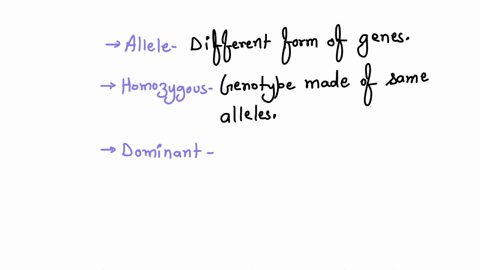 → Allele- Different form of genes.
→ Homozygous- Genotype made of same
alleles.
→ Dominant -